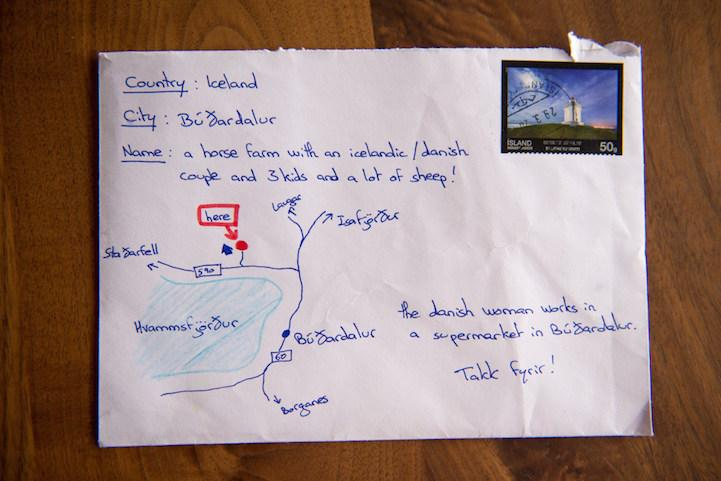 Country: Iceland
City: Búðardalur
Name: a horse farm with an icelandic/danish
couple and 3 kids and a lot of sheep!
ÍSLAND
50g
here
Laugar
Isafjörður
Staðarfell
590
Hvammsfjörður
Búðardalur
60
Borganes
the danish woman works in
a supermarket in Búðardalur.
Takk fyrir!